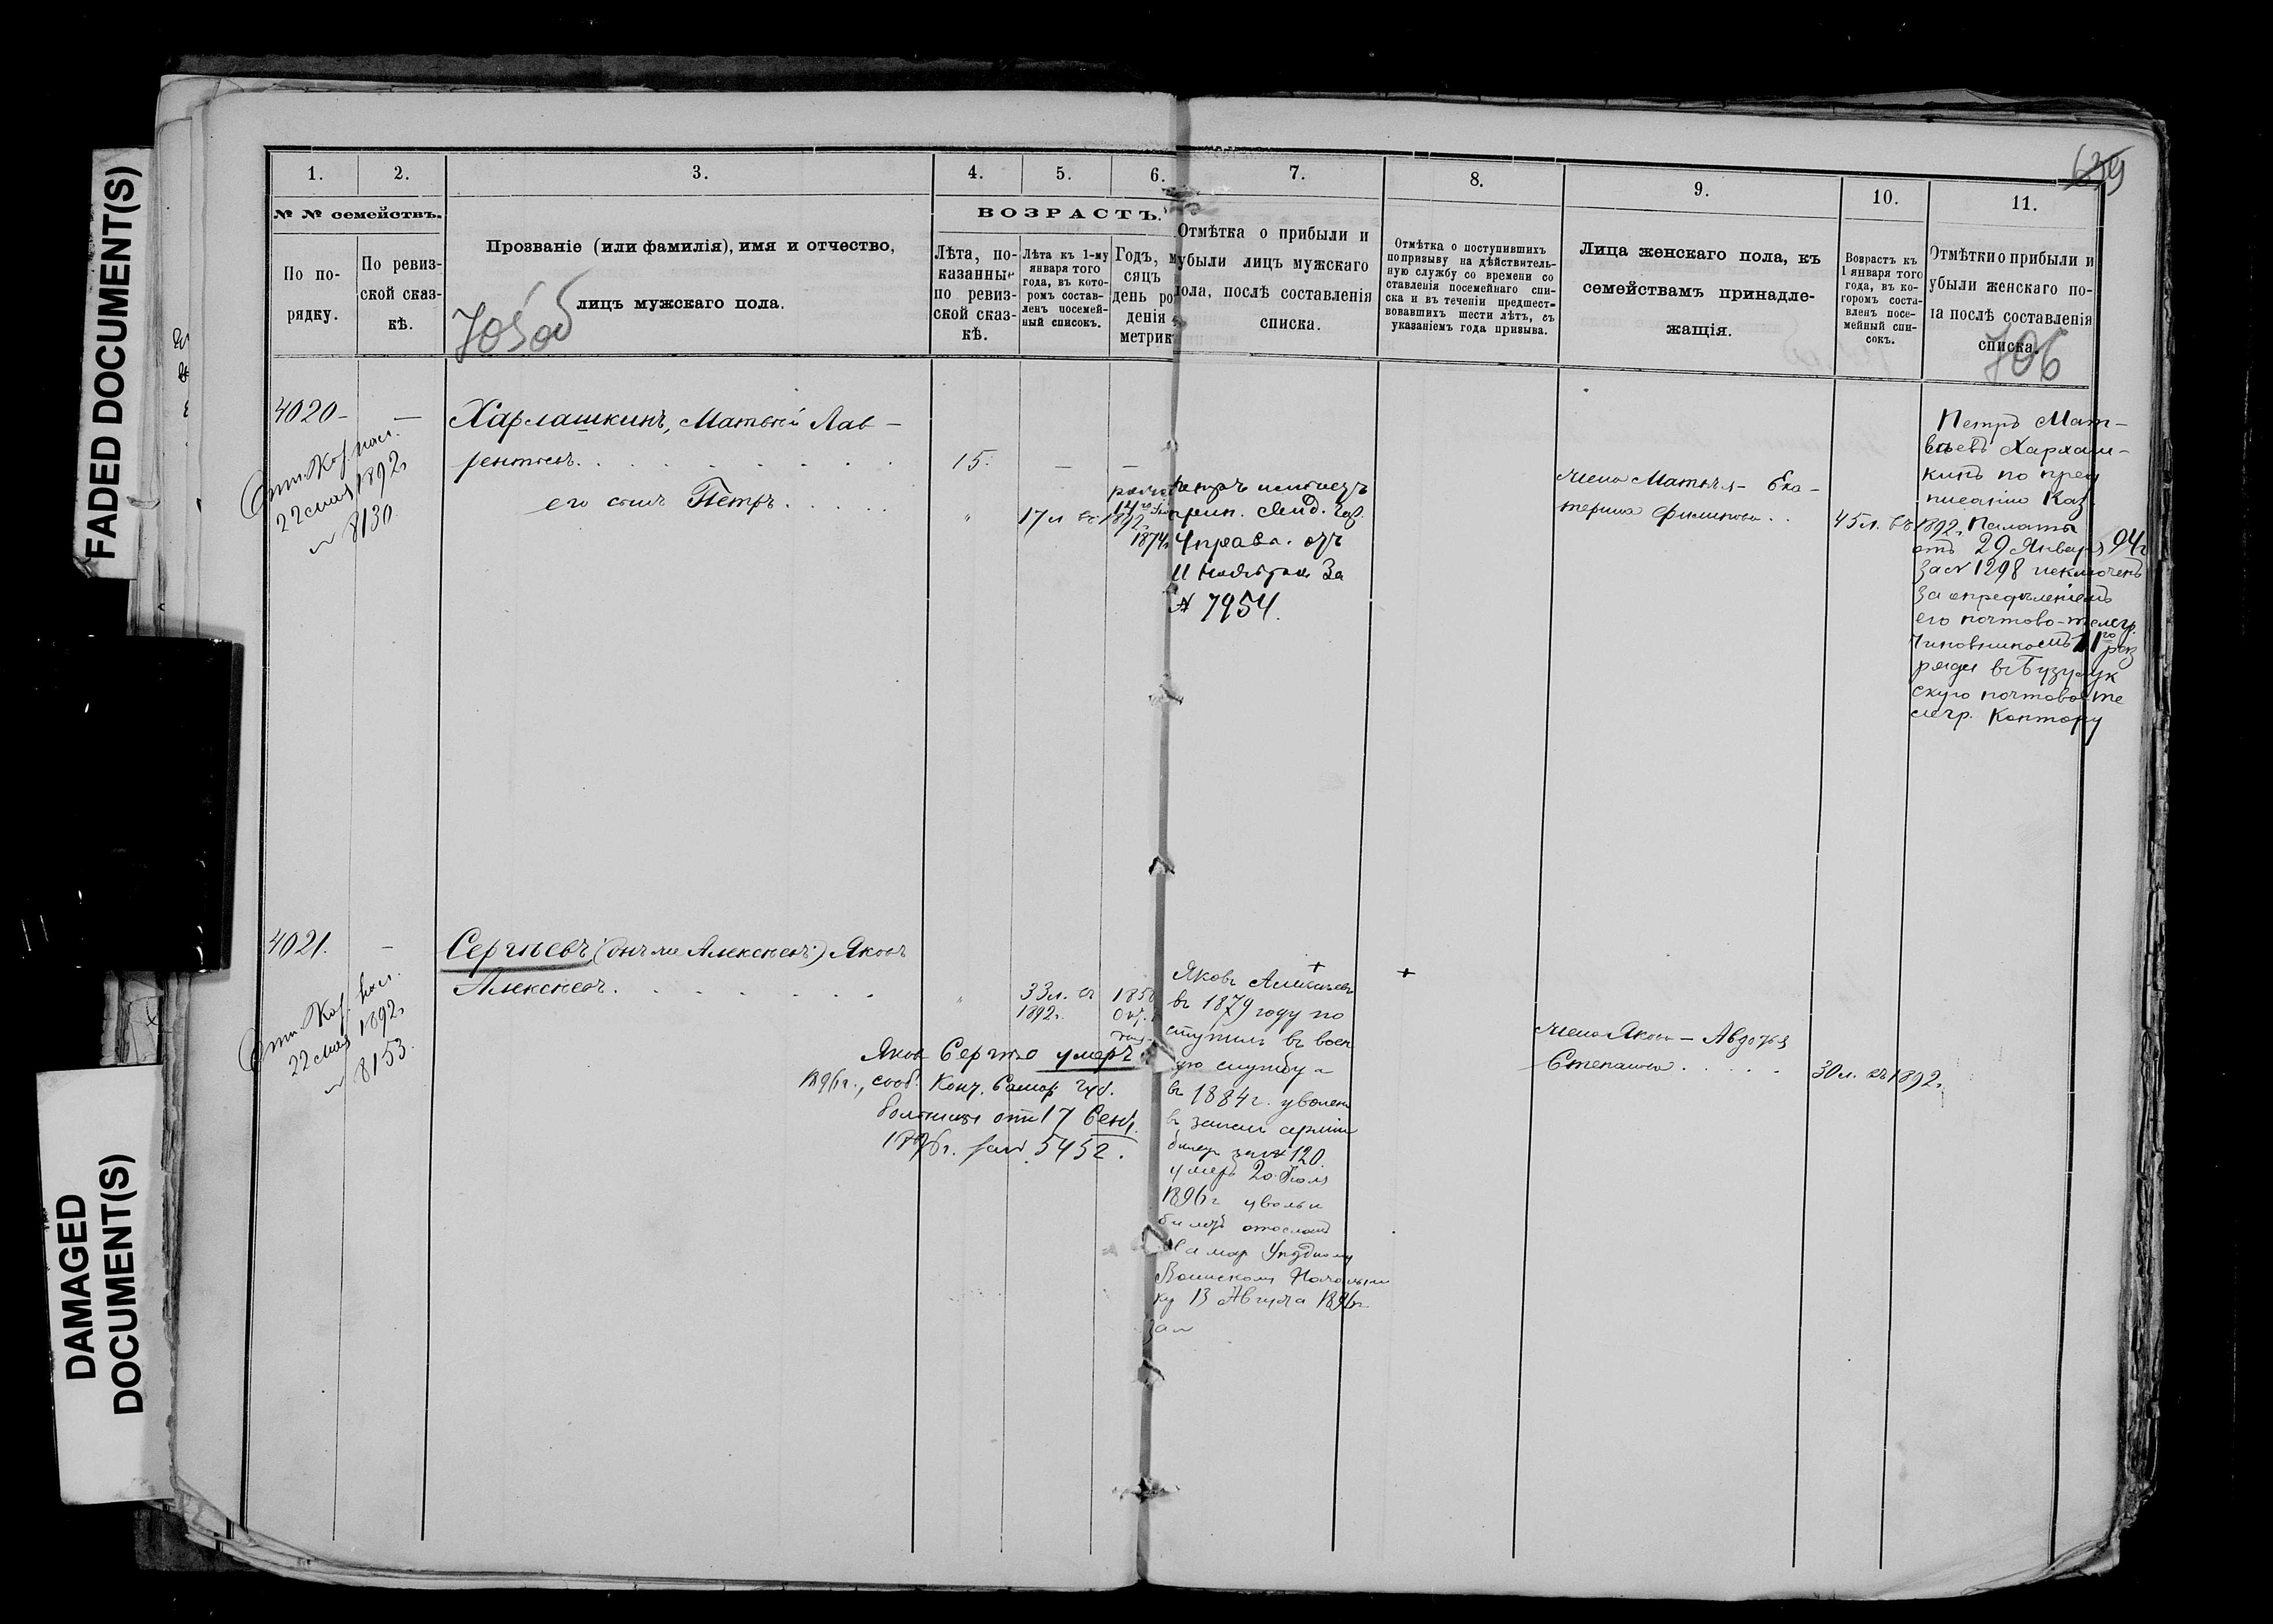 FADED DOCUMENT(S)
DAMAGED
DOCUMENT(S)
639
1.
2.
3.
4.
5.
6.
7.
8.
9.
10.
11.
№ № семействъ.
По по-
рядку.
По ревиз-
ской сказ-
кѣ.
Прозваніе (или фамилія), имя и отчество,
лицъ мужскаго пола.
ВОЗРАСТЪ.
Лѣта, по-
казанные
по ревиз-
ской сказ-
кѣ.
Лѣта къ 1-му
января того
года, въ кото-
ромъ состав-
ленъ посемей-
ный списокъ.
Годъ, м
сяцъ
день ро
денія
метрик
Отмѣтка о прибыли и
убыли лицъ мужскаго
пола, послѣ составленія
списка.
Отмѣтка о поступившихъ
по призыву на дѣйствитель-
ную службу со времени со
ставленія посемейнаго спи-
ска и въ теченіи предшест-
вовавшихъ шести лѣтъ, съ
указаніемъ года призыва.
Лица женскаго пола, къ
семействамъ принадле-
жащія.
Возрастъ къ
1 января того
года, въ ко-
торомъ соста-
вленъ посе-
мейный спи-
сокъ.
Отмѣтки о прибыли и
убыли женскаго по-
ла послѣ составленія
списка.
706
4020 - —
Харлашкинъ, Матвѣй Лав-
рентьевъ
15.
его сынъ Петръ
17 л. въ 1892 г.
1874 г.
22 мая 1892 г.
№ 8130.
Управа. отъ
За
№ 7954.
жена Матвѣя - Ека-
терина Филипова
45 л. въ 1892 г.
Петръ Мат-
вѣевъ Харлаш-
кинъ по пред
писанію Каз.
Палаты
отъ 29 Января 94 г
за № 1298 исключенъ
за опредѣленіемъ
его почтово-телегр.
чиновникомъ
ряда въ Бузулук
скую почтово те
легр. Контору
4021. —
Сергѣевъ (онъ же Алексѣевъ) Яковъ
Алексѣевъ
33 л. въ
1892 г.
22 мая 1892 г.
№ 8153.
Яковъ Сергѣевъ умеръ
1896 г., сооб. Конт. Самар. Губ.
больницы отъ 17 Сент.
1896 г. за № 5452.
Яковъ Алексѣевъ
въ 1879 году по
ступилъ въ воен
ую службу и
въ 1884 г. уволенъ
въ запасъ арміи
билетъ за № 120.
умеръ 20 Іюля
1896 г. увольн
билетъ отосланъ
Самар Уѣздному
Воинскому Начальни
ку 13 Августа 1896 г.
за №
жена Якова - Авдотья
Степанова
30 л. въ 1892 г.